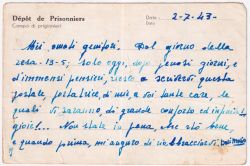 Dépôt de Prisonniers
Campo di prigionieri
Date
Data
2-7-43-
Miei amati genitori. Dal giorno della
resa. 13-5, solo oggi, dopo penosi giorni, e
d'immensi pensieri, riesco a scrivervi questa
postale, portatrice, di mie a voi tante care, le
quali vi saranno, di grande conforto ed infinita
gioia!... Non state in pena, che sto bene,
e quando prima, mi auguro di riabbracciarvi